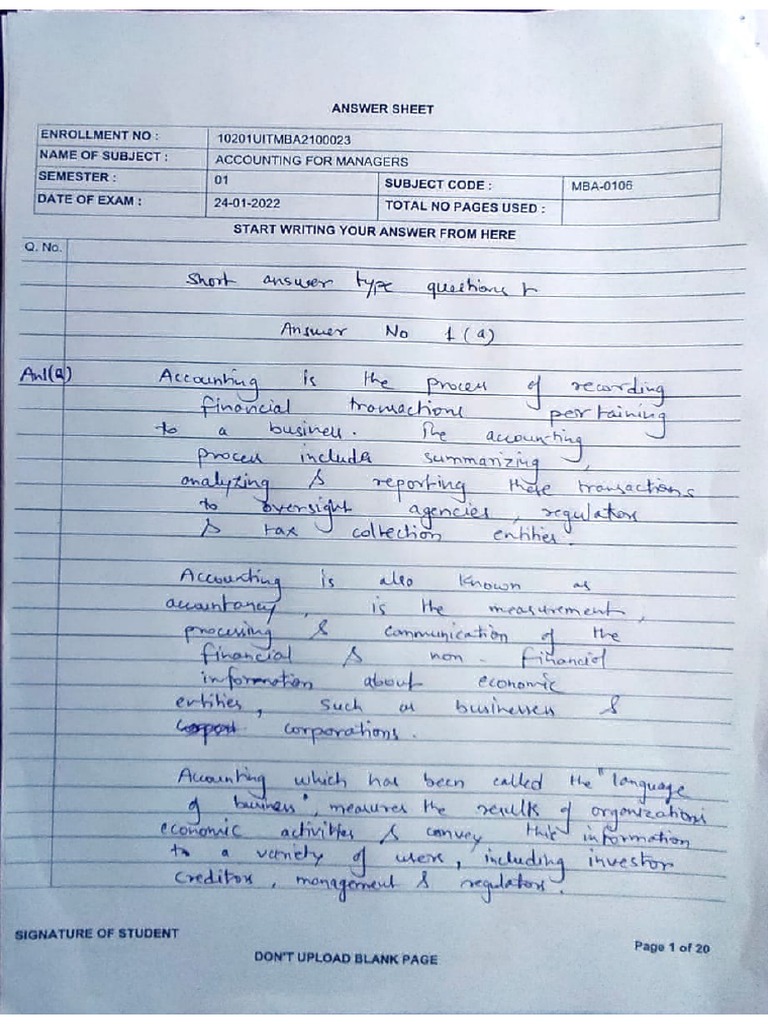 ANSWER SHEET
ENROLLMENT NO : 10201UITMBA2100023
NAME OF SUBJECT : ACCOUNTING FOR MANAGERS
SEMESTER : 01 SUBJECT CODE : MBA-0106
DATE OF EXAM : 24-01-2022 TOTAL NO PAGES USED :
START WRITING YOUR ANSWER FROM HERE
Q. No.
Short answer type questions
Answer No 1 (a)
Ans(a) Accounting is the process of recording
financial transactions pertaining
to a business. The accounting
process includes summarizing,
analyzing & reporting these transactions
to oversight agencies, regulators
& tax collection entities.
Accounting is also known as
accountancy, is the measurement,
processing & communication of the
financial & non - financial
information about economic
entities, such as businesses &
corporations.
Accounting which has been called the "language
of business", measures the results of organizations
economic activities & convey this information
to a variety of users, including investor
creditors, management & regulators.
SIGNATURE OF STUDENT
DON'T UPLOAD BLANK PAGE
Page 1 of 20